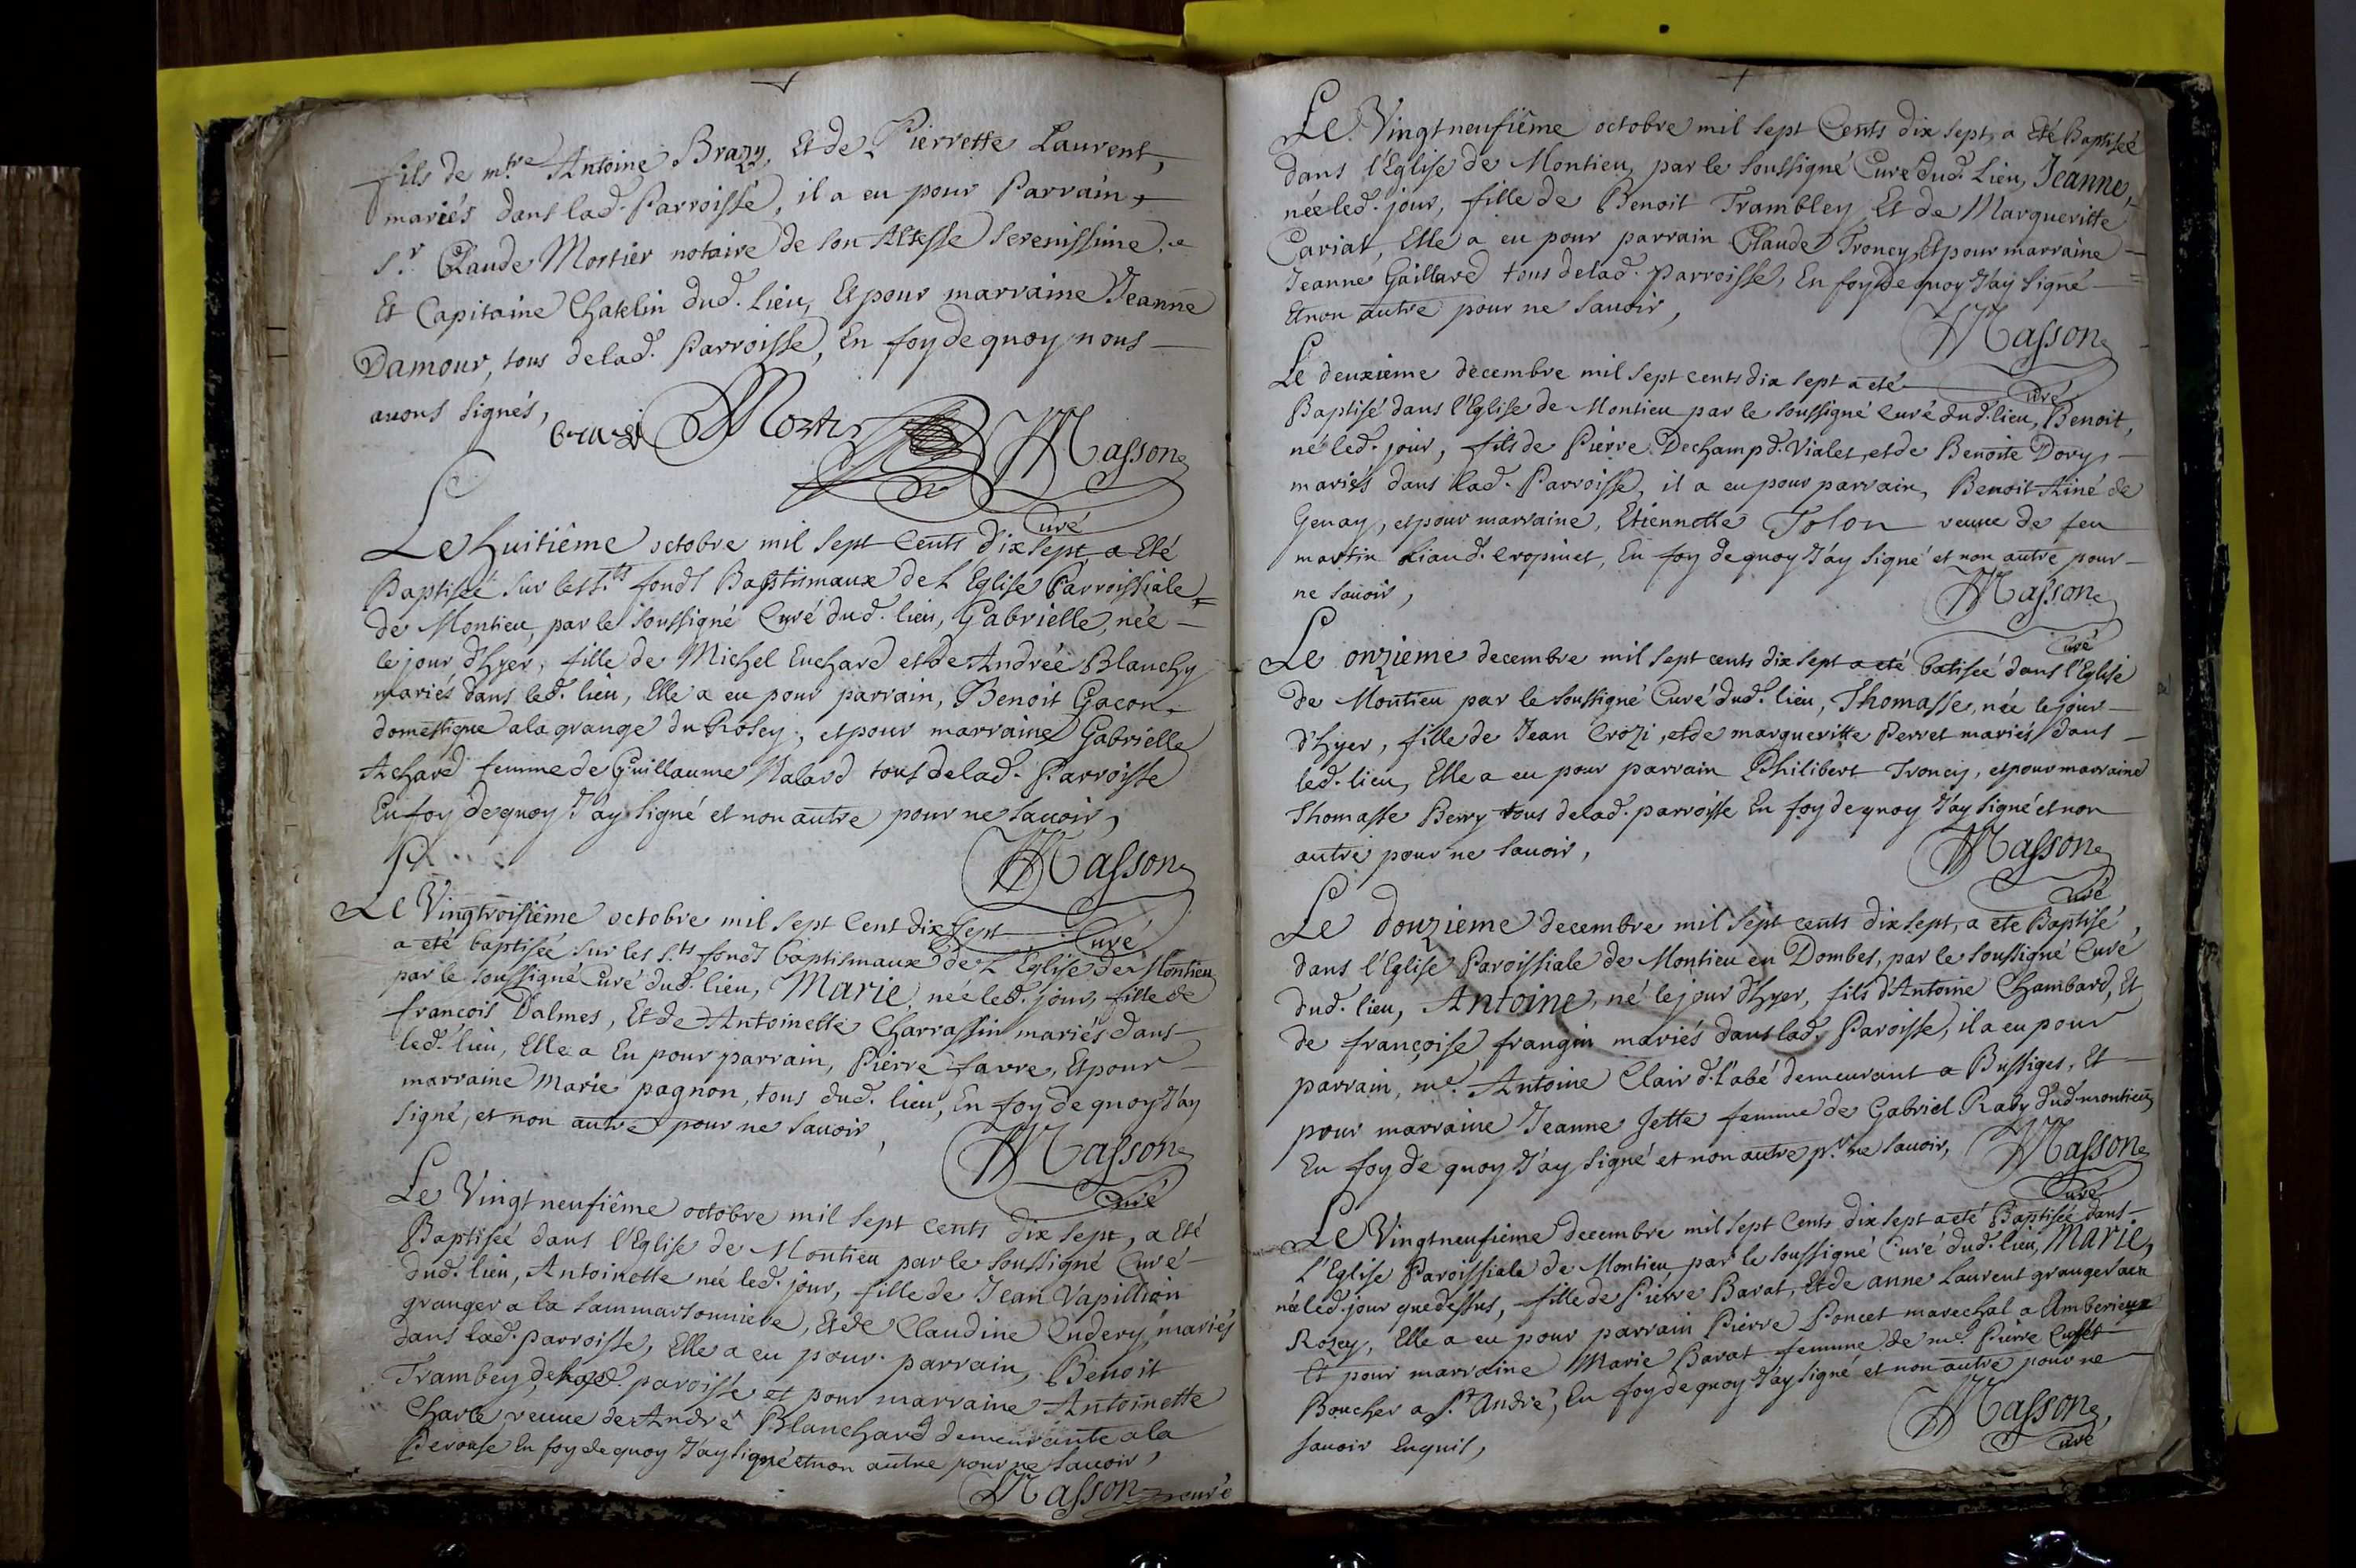 fils de m.tre Antoine Brazy, Et de Pierrette Laurent,
mariés dans lad. Parroisse, il a eu pour Parrain,
S.r Claude Mortier notaire de son Altesse Serenissime,
Et Capitaine Chatelin dud. lieu, Et pour marraine Jeanne
Damour, tous delad. Parroisse, En foy de quoy nous
auons signés,
Mortier Masson
Curé
Le huitiême octobre mil sept Cents dix sept a Eté
Baptisée sur les s.ts fonds Baptismaux de L'Eglise Parroissiale
de Montieu, par le soussigné Curé dud. lieu, Gabrielle, née
le jour d'hyer, fille de Michel Euchard et de Andrée Blanchy
mariés dans led. lieu, Elle a eu pour parrain, Benoit Gacon
domestique a la grange du Rosey, et pour marraine Gabrielle
Achard femme de Guillaume Valard tous delad. Parroisse
En foy de quoy J'ay signé et non autre pour ne sauoir,
Masson
Curé
Le Vingtroisiême octobre mil sept Cent dix sept
a eté baptisée sur les s.ts fonds baptismaux de L'Eglise de Montieu
par le soussigné Curé dud. lieu, Marie, née led. jour, fille de
françois Dalmes, Et de Antoinette Charrassin mariés dans
led. lieu, Elle a Eu pour parrain, Pierre favre, Et pour
marraine Marie pagnon, tous dud. lieu, En foy de quoy J'ay
signé, et non autre pour ne sauoir,
Masson
Curé
Le Vingt neufiême octobre mil sept cents dix sept, a Eté
Baptisée dans l'Eglise de Montieu par le soussigné Curé
dud. lieu, Antoinette née led. jour, fille de Jean Vapillion
granger a la sammarsonniere, Et de Claudine Cudery, mariés
dans lad. parroisse, Elle a eu pour parrain, Benoit
Trambey, de lad. paroisse et pour marraine Antoinette
Charle, veuue de André Blanchard demeurante a la
Perouse En foy de quoy J'ay signé et non autre pour ne sauoir,
Masson curé
Le Vingt neufiême octobre mil sept Cents dix sept, a Eté Baptisée
dans l'Eglise de Montieu, par le soussigné Curé dud. Lieu, Jeanne,
née led. jour, fille de Benoit Trambley, Et de Margueritte
Cariat, Elle a eu pour parrain Claude Troncy, Et pour marraine
Jeanne Gaillard tous delad. parroisse, En foy de quoy J'ay signé
Et non autre pour ne sauoir,
Masson
Curé
Le deuxiême decembre mil sept cents dix sept a eté
Baptisé dans l'Eglise de Montieu par le soussigné Curé dud. lieu, Benoit,
né led. jour, fils de Pierre Dechamp d. Vialet, et de Benoite Dory
mariés dans lad. Parroisse, il a eu pour parrain, Benoit Ainé de
Genay, et pour marraine, Etiennette Tolon veuue de feu
martin Liaud. Cropinet, En foy de quoy J'ay signé et non autre pour
ne sauoir,
Masson
Curé
Le onzieme decembre mil sept cents dix sept a eté batiseé dans l'Eglise
de Montieu par le soussigné Curé dud. lieu, Thomasse, née le jour
d'hyer, fille de Jean Crozi, et de margueritte Perret mariés dans
led. lieu, Elle a eu pour parrain Philibert Troncy, et pour marraine
Thomasse Berry tous delad. parroisse En foy de quoy J'ay signé et non
autre pour ne sauoir,
Masson
Curé
Le douzieme decembre mil sept cents dix sept, a ete Baptisé
dans l'Eglise Paroissiale de Montieu en Dombes, par le soussigné Curé
dud. lieu, Antoine, né le jour d'hyer, fils d'Antoine Chambard, Et
de françoise frangin mariés dans lad. Paroisse, il a eu pour
parrain, m.e Antoine Clair d. l'abé demeurant a Bussiges, Et
pour marraine Jeanne Jette femme de Gabriel Rady dud. montieu
En foy de quoy J'ay signé et non autre p.r ne sauoir, Masson
Curé
Le Vingtneufieme decembre mil sept Cents dix sept a eté Baptisée dans
l'Eglise Paroissiale de Montieu, par le soussigné Curé dud. lieu, Marie,
née led. jour que dessus, fille de Pierre Barat, Et de anne Laurent granger aen
Rozey, Elle a eu pour parrain Pierre Poncet marechal a Amberieux
Et pour marraine Marie Barat femme de m.e Pierre Cusset
Boucher a S.t André, En foy de quoy J'ay signé et non autre pour ne
sauoir Enquis,
Masson,
Curé